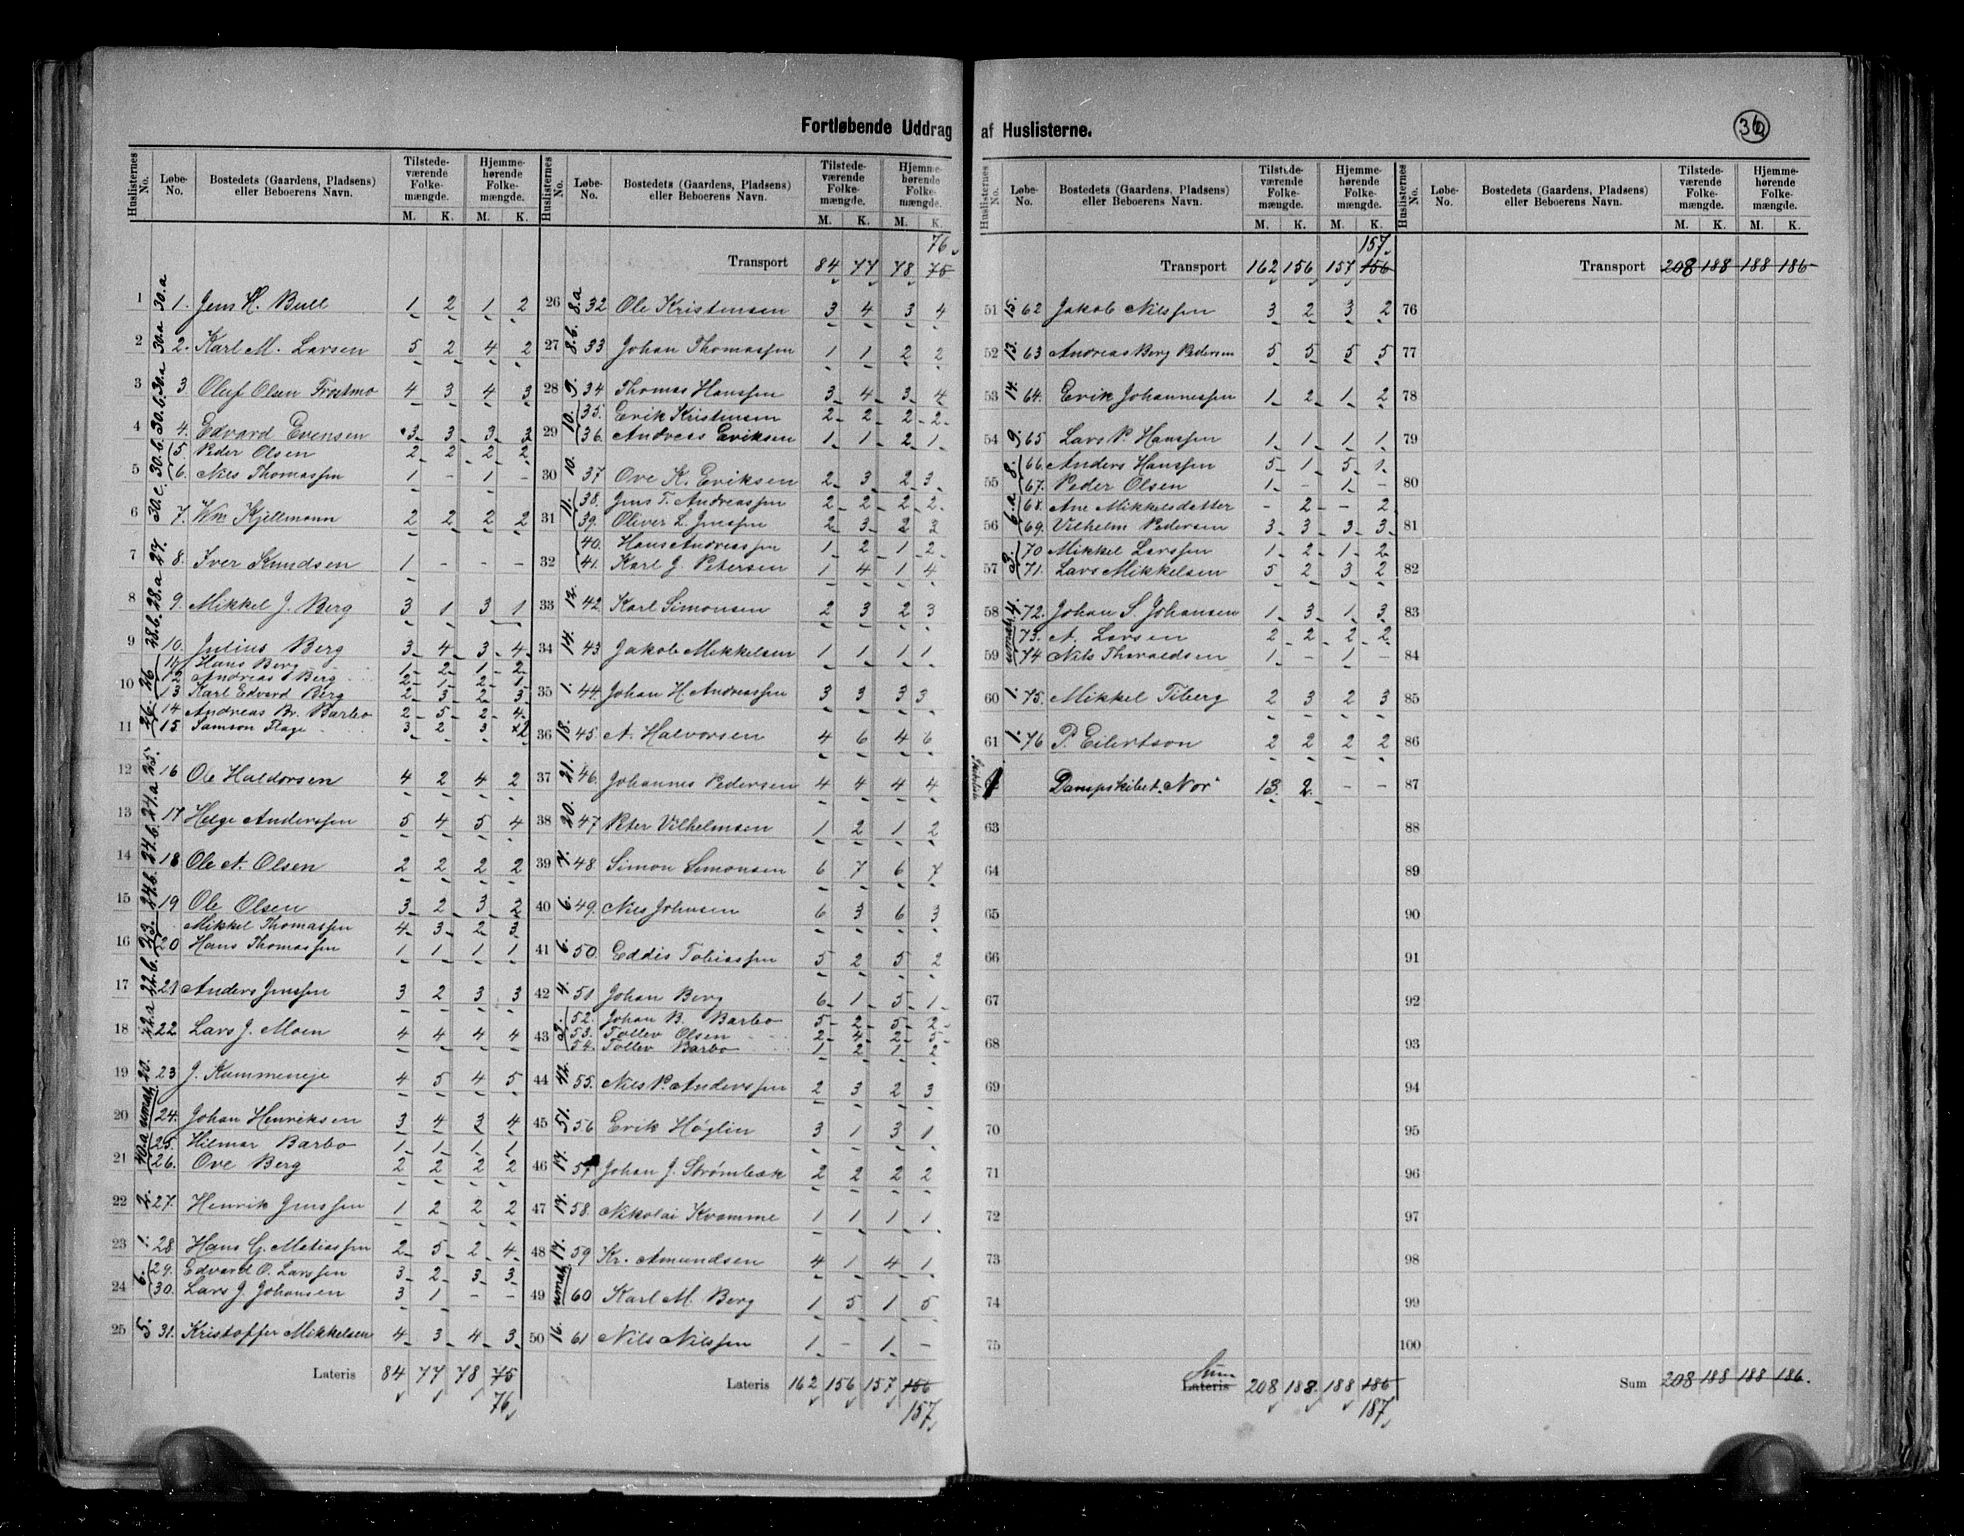 Fortløbende Uddrag af Huslisterne.
36
Huslisternes No. Løbe-No. Bostedets (Gaardens, Pladsens) eller Beboerens Navn. Tilstedeværende Folkemængde. M. K. Hjemmehørende Folkemængde. M. K.
1 30.a 1. Jens H. Bull 1 2 1 2
2 30.a 2. Karl M. Larsen 5 2 4 2
3 30.a 3 Oluf Olsen Frostmo 4 3 4 3
4 30.b. 4. Edvard Evensen 3 3 3 3
30.b. 5. Peder Olsen 2 2 2 2
5 6. Nils Thomassen 1 - 1 -
6 30.c. 7. Wm Kjellmann 2 2 2 2
7 27. 8. Iver Knudsen 1 - - -
8 28.a 9. Mikkel J. Berg 3 1 3 1
9 28.b. 10. Julius Berg 3 4 3 4
26 11 Hans Berg 1 2 1 2
10 12 Andreas Berg 2 1 2 1
13 Karl Edvard Berg 2 3 2 3
26. 14 Andreas Br. Barbo 2 5 2 4
11 15. Samson Flage 3 2 3 2
12 25. 16 Ole Haldorsen 4 2 4 2
13 24.a 17 Helge Anderssen 5 4 5 4
14 24.b. 18 Ole A. Olsen 2 2 2 2
15 24.b. 19 Ole Olsen 3 2 3 2
23. Mikkel Thomassen 4 3 2 3
16 20 Hans Thomassen 1 1 1 1
17 22.b. 21 Anders Jenssen 3 2 3 3
18 22.a 22 Lars J. Moen 4 4 4 4
19 20. 23 J. Kummeneje 4 5 4 5
20 umat. 24. Johan Henriksen 3 4 3 4
25. Hilmar Barbo 1 1 1 1
21 26. Ove Berg 2 2 2 2
22 2. 27. Henrik Jenssen 1 2 2 2
23 1. 28. Hans G. Matiassen 2 5 2 4
6. 29. Edvard O. Larssen 3 2 3 3
24 30. Lars J. Johansen 3 1 - -
25 5. 31. Kristoffer Mikkelsen 4 3 4 3
Lateris 84 77 78 75
76
Huslisternes No. Løbe-No. Bostedets (Gaardens, Pladsens) eller Beboerens Navn. Tilstedeværende Folkemængde. M. K. Hjemmehørende Folkemængde. M. K.
76
Transport 84 77 78 75
26 8.a 32 Ole Kristensen 3 4 3 4
27 8.b. 33 Johan Thomassen 1 1 2 2
28 9. 34 Thomas Hanssen 3 4 3 4
10. 35. Erik Kristensen 2 2 2 2
29 36. Andreas Eriksen 1 1 2 1
30 10. 37 Ove K. Eriksen 2 3 2 3
11. 38. Jens T. Andreassen 2 2 2 2
31 39. Oliver L. Jenssen 2 3 2 3
40. Hans Andreassen 1 2 1 2
32 41. Karl J. Petersen 1 4 1 4
33 12. 42 Karl Simonsen 2 3 2 3
34 14. 43 Jakob Mikkelsen 1 1 1 1
35 1. 44. Johan H. Andreassen 3 3 3 3
36 18. 45 A. Halvorsen 4 6 4 6
37 21. 46. Johannes Pedersen 4 4 4 4
38 20. 47 Peter Vilhelmsen 1 2 1 2
39 7. 48 Simon Simonsen 6 7 6 7
40 6. 49. Nils Johnsen 6 3 6 3
41 6. 50. Eddis Tobiassen 5 2 5 2
42 4. 51 Johan Berg 6 1 5 1
3. 52. Johan B. Barbo 5 2 5 2
43 53. Tollev Olsen 2 4 2 5
54. Tollev Barbo 1 2 1 2
44 42. 55. Nils P. Anderssen 2 3 2 3
45 51. 56 Erik Høglin 3 1 3 1
46 17. 57 Johan J. Strømbæk 2 2 2 2
47 17. 58. Nikolai Kvamme 1 1 1 1
48 17. 59 Kr. Amundsen 4 1 4 1
49 umat. 60 Karl M. Berg 1 5 1 5
50 16. 61 Nils Nilssen 1 - 1 -
Lateris 162 156 157 156
157
Huslisternes No. Løbe-No. Bostedets (Gaardens, Pladsens) eller Beboerens Navn. Tilstedeværende Folkemængde. M. K. Hjemmehørende Folkemængde. M. K.
157
Transport 162 156 157 156
51 15. 62 Jakob Nilssen 3 2 3 2
52 13. 63 Andreas Berg Pedersen 5 5 5 5
53 14. 64. Erik Johannessen 1 2 1 2
54 9. 65 Lars P. Hanssen 1 1 1 1
8. 66. Anders Hanssen 5 1 5 1
55 67. Peder Olsen 1 - 1 -
6.a 68. Ane Mikkelsdatter - 2 - 2
56 69. Vilhelm Pedersen 3 3 3 3
3. 70 Mikkel Larssen 1 2 1 2
57 71. Lars Mikkelsen 5 2 3 2
58 4. 72. Johan S. Johansen 1 3 1 3
umat. 73. A. Larsen 2 2 2 2
59 74 Nils Thoraldsen 1 - 1 -
60 1. 75. Mikkel Tiberg 2 3 2 3
61 1. 76 P. Eilertson 2 2 2 2
Dampskibet "Nor" 13 2 - -
63
64
65
66
67
68
69
70
71
72
73
74
75
Sum
Lateris 208 188 188 186
187
Huslisternes No. Løbe-No. Bostedets (Gaardens, Pladsens) eller Beboerens Navn. Tilstedeværende Folkemængde. M. K. Hjemmehørende Folkemængde. M. K.
Transport 208 188 188 186
76
77
78
79
80
81
82
83
84
85
86
87
88
89
90
91
92
93
94
95
96
97
98
99
100
Sum 208 188 188 186.